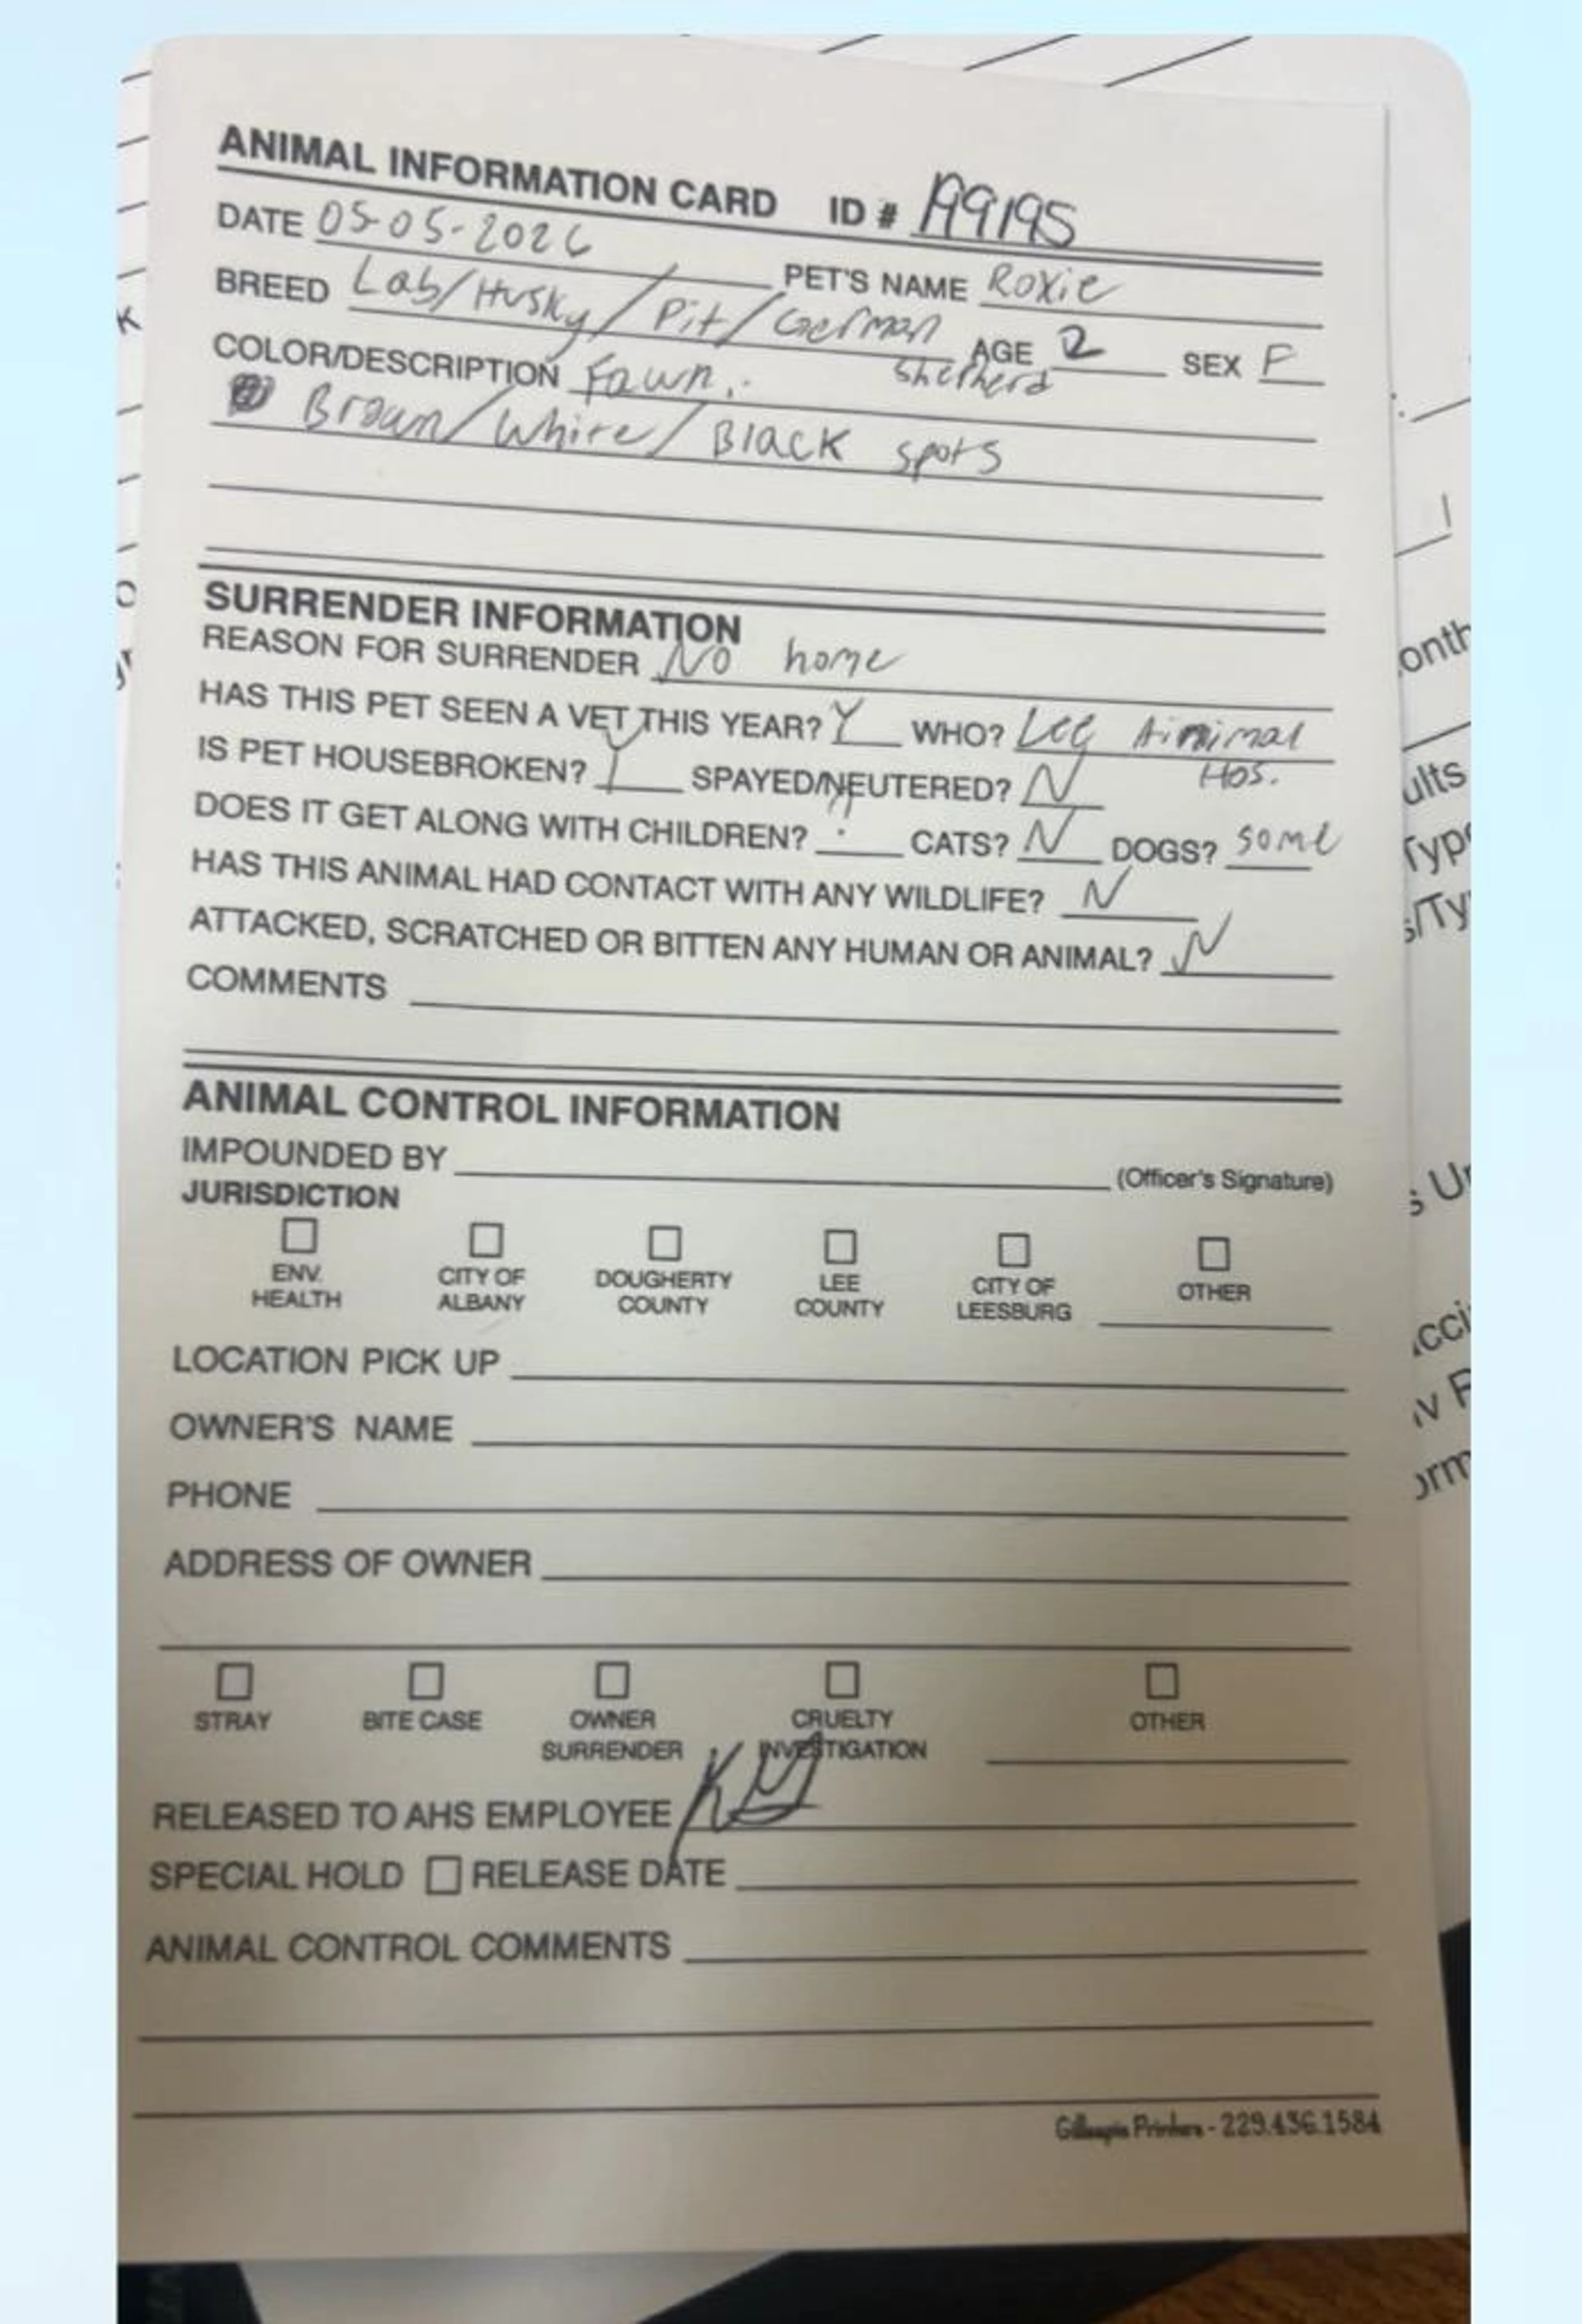 ANIMAL INFORMATION CARD ID # 199195
DATE 05-05-2026 PET'S NAME Roxie
BREED Lab/Husky/Pit/German Shepherd AGE 2 SEX F
COLOR/DESCRIPTION Fawn
Brown/White/Black spots
SURRENDER INFORMATION
REASON FOR SURRENDER No home
HAS THIS PET SEEN A VET THIS YEAR? Y WHO? Lee Ainimal Hos.
IS PET HOUSEBROKEN? Y SPAYED/NEUTERED? N
DOES IT GET ALONG WITH CHILDREN? CATS? N DOGS? some
HAS THIS ANIMAL HAD CONTACT WITH ANY WILDLIFE? N
ATTACKED, SCRATCHED OR BITTEN ANY HUMAN OR ANIMAL? N
COMMENTS
ANIMAL CONTROL INFORMATION
IMPOUNDED BY (Officer's Signature)
JURISDICTION
ENV. HEALTH CITY OF ALBANY DOUGHERTY COUNTY LEE COUNTY CITY OF LEESBURG OTHER
LOCATION PICK UP
OWNER'S NAME
PHONE
ADDRESS OF OWNER
STRAY BITE CASE OWNER SURRENDER CRUELTY INVESTIGATION OTHER
RELEASED TO AHS EMPLOYEE
SPECIAL HOLD RELEASE DATE
ANIMAL CONTROL COMMENTS
Printers - 229.436.1584